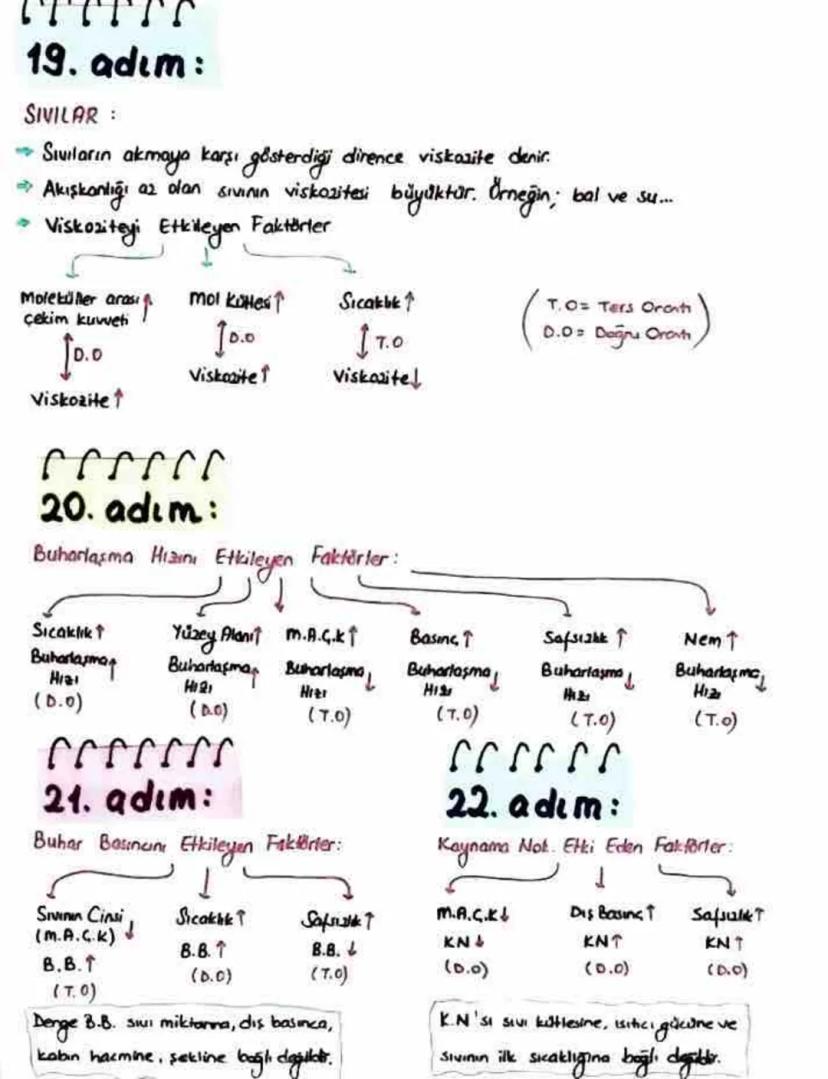 19. adım:
SIVILAR :
⇒ Sıvıların akmaya karşı gösterdiği dirence viskozite denir.
⇒ Akışkanlığı az olan sıvının viskozitesi büyüktür. Örneğin; bal ve su...
➔ Viskoziteyi Etkileyen Faktörler
Moleküller arası ↑
çekim kuvveti
↕ D.O
Viskozite ↑
Mol Kütlesi ↑
↕ D.O
Viskozite ↑
Sıcaklık ↑
↕ T.O
Viskozite ↓
T.O = Ters Orantı
D.O = Doğru Orantı
20. adım:
Buharlaşma Hızını Etkileyen Faktörler :
Sıcaklık ↑
Buharlaşma ↑
Hızı
(D.O)
Yüzey Alanı ↑
Buharlaşma ↑
Hızı
(D.O)
M.A.Ç.K ↑
Buharlaşma ↓
Hızı
(T.O)
Basınç ↑
Buharlaşma ↓
Hızı
(T.O)
Safsızlık ↑
Buharlaşma ↓
Hızı
(T.O)
Nem ↑
Buharlaşma ↓
Hızı
(T.O)
21. adım:
Buhar Basıncını Etkileyen Faktörler:
Sıvının Cinsi
(M.A.Ç.K) ↓
B.B. ↑
(T.O)
Sıcaklık ↑
B.B. ↑
(D.O)
Safsızlık ↑
B.B. ↓
(T.O)
Denge B.B. sıvı miktarına, dış basınca,
kabın hacmine, şekline bağlı değildir.
22. adım:
Kaynama Nok. Etki Eden Faktörler:
M.A.Ç.K ↓
KN ↓
(D.O)
Dış Basınç ↑
KN ↑
(D.O)
Safsızlık ↑
KN ↑
(D.O)
K.N'sı sıvı kütlesine, ısıtıcı gücüne ve
sıvının ilk sıcaklığına bağlı değildir.